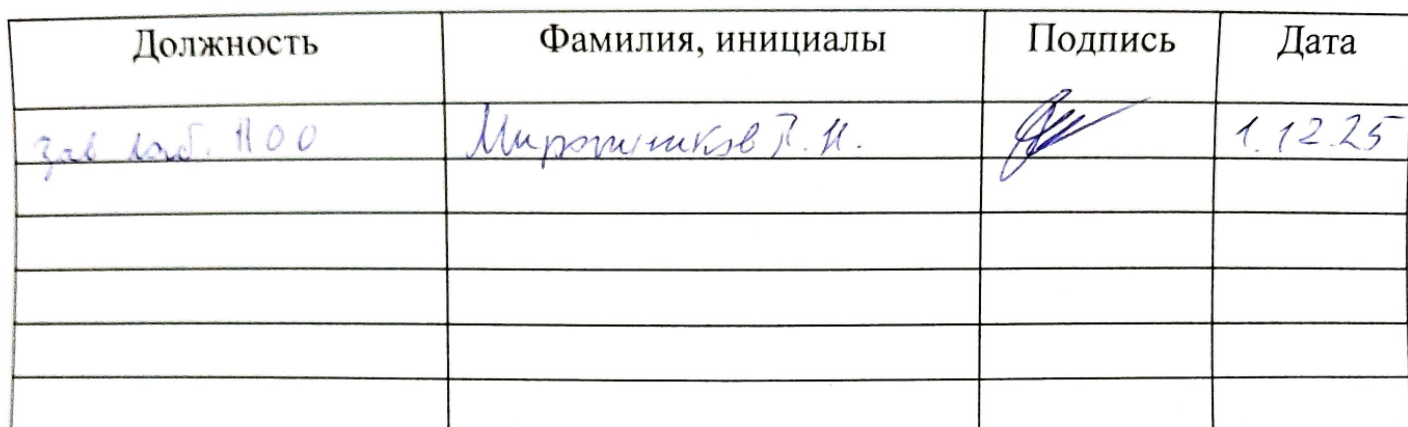 Должность Фамилия, инициалы Подпись Дата
зав лаб. ПОО П. Н. 1.12.25